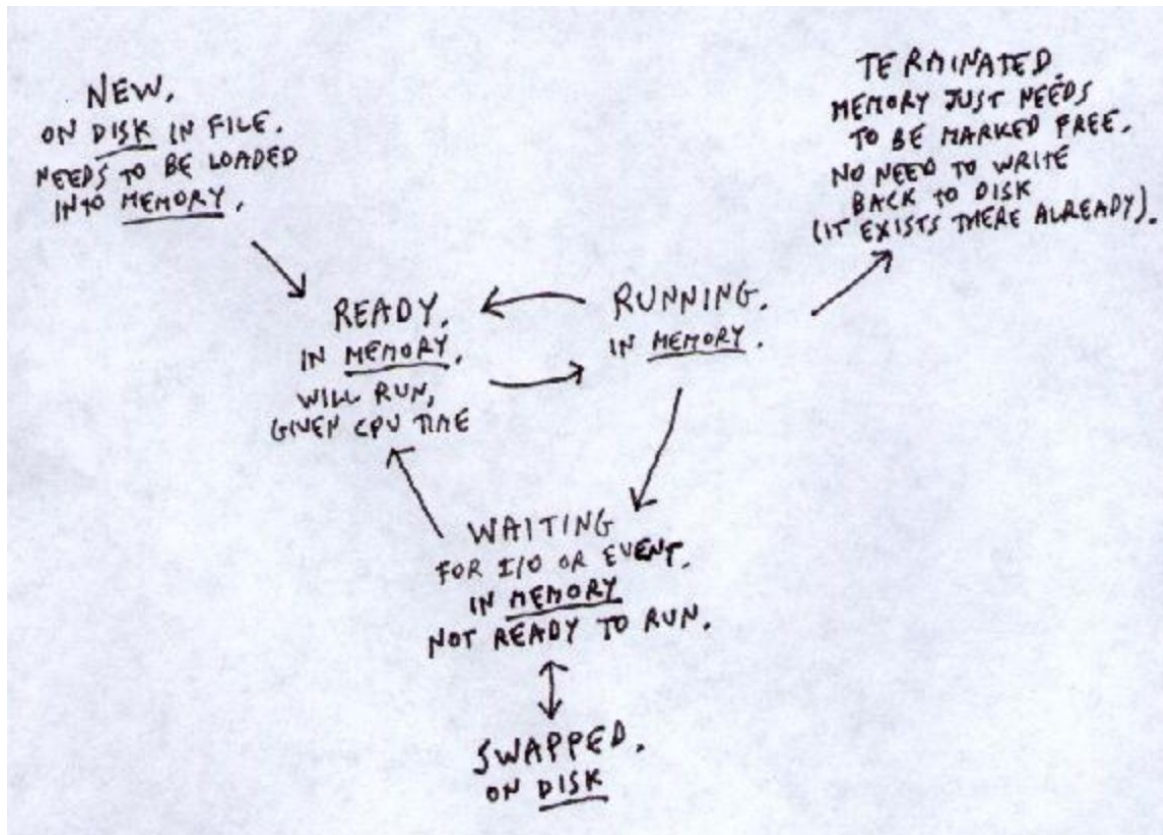 NEW.
ON DISK IN FILE.
NEEDS TO BE LOADED
INTO MEMORY.
TERMINATED.
MEMORY JUST NEEDS
TO BE MARKED FREE.
NO NEED TO WRITE
BACK TO DISK
(IT EXISTS THERE ALREADY).
READY.
IN MEMORY.
WILL RUN,
GIVEN CPU TIME
RUNNING.
IN MEMORY.
WAITING
FOR I/O OR EVENT.
IN MEMORY
NOT READY TO RUN.
SWAPPED.
ON DISK